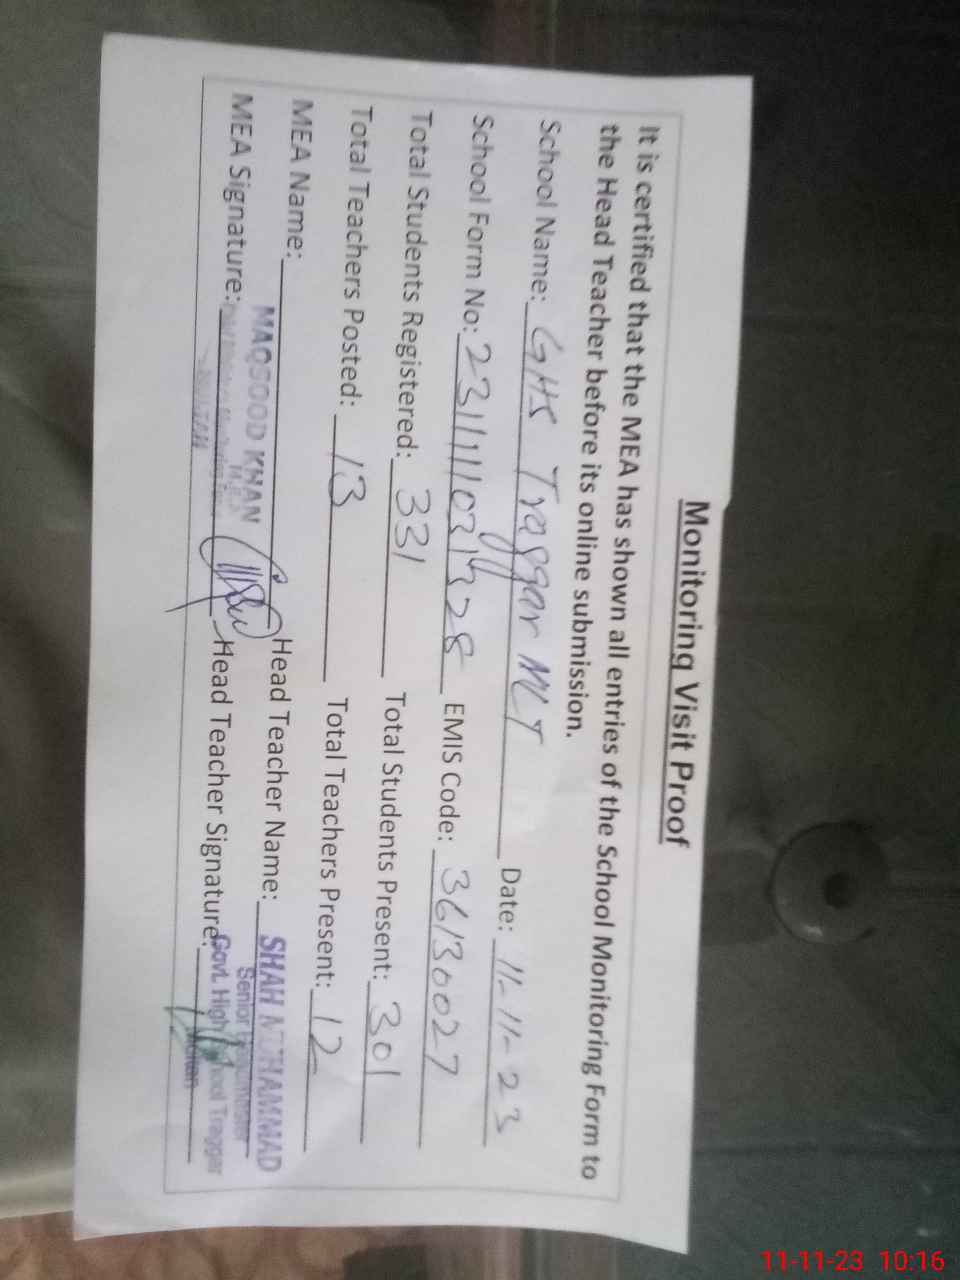 Monitoring Visit Proof
It is certified that the MEA has shown all entries of the School Monitoring Form to
the Head Teacher before its online submission.
School Name: GHS Traggar MLT Date: 11-11-23
School Form No: EMIS Code: 36130027
Total Students Registered: 331 Total Students Present: 301
Total Teachers Posted: 13 Total Teachers Present: 12
MEA Name: MAQSOOD KHAN Head Teacher Name: SHAH MUHAMMAD
Senior Headmaster
MEA Signature: Head Teacher Signature: Govt. High School Traggar
MULTAN Multan
11-11-23 10:16